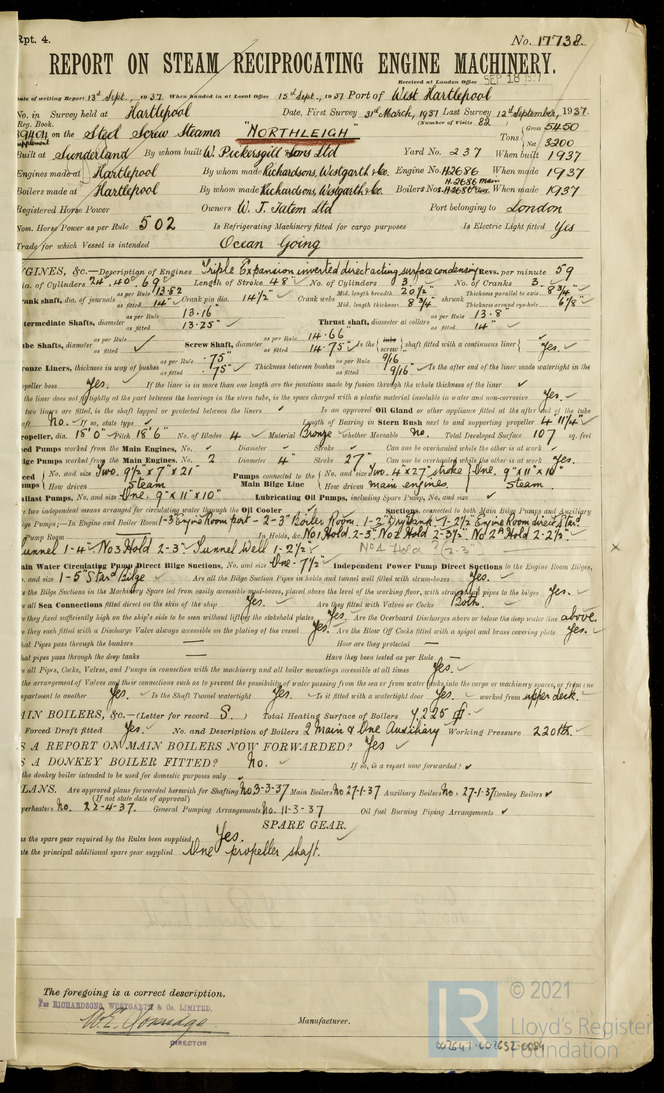 Rpt. 4. No. 17738.
REPORT ON STEAM RECIPROCATING ENGINE MACHINERY.
Received at London Office SEP 18 1937
Date of writing Report 13th Sept., 1937. When handed in at Local Office 15th Sept., 1937 Port of West Hartlepool
No. in Survey held at Hartlepool Date, First Survey 31st March, 1937 Last Survey 12th September, 1937.
Reg. Book. (Number of Visits 82
on the Steel Screw Steamer "NORTHLEIGH" Tons Gross 5450 Net 3200
Built at Sunderland By whom built W. Pickersgill & Sons Ltd Yard No. 237 When built 1937
Engines made at Hartlepool By whom made Richardsons, Westgarth & Co. Engine No. H2686 When made 1937
Boilers made at Hartlepool By whom made Richardsons, Westgarth & Co. Boilers No. H.2686 main When made 1937
Registered Horse Power Owners W. J. Tatem Ltd Port belonging to London
Nom. Horse Power as per Rule 502 Is Refrigerating Machinery fitted for cargo purposes Is Electric Light fitted Yes
Trade for which Vessel is intended Ocean Going
GINES, &c.—Description of Engines Triple Expansion inverted direct acting surface condensing Revs. per minute 59
Dia. of Cylinders 24" 40" 69" Length of Stroke 48" No. of Cylinders 3 No. of Cranks 3
rank shaft, dia. of journals as per Rule 13.82 as fitted 14" Crank pin dia. 14½" Crank webs Mid. length breadth 20½" Mid. length thickness 8¾" shrunk Thickness parallel to axis 8¾" Thickness around eye-hole 6⅛"
termediate Shafts, diameter as per Rule 13.16" as fitted 13.25" Thrust shaft, diameter at collars as per Rule 13.8" as fitted 14"
be Shafts, diameter as per Rule as fitted Screw Shaft, diameter as per Rule 14.66" as fitted 14.75" Is the tube screw shaft fitted with a continuous liner Yes.
ronze Liners, thickness in way of bushes as per Rule .75" as fitted .75" Thickness between bushes as per Rule 9/16 as fitted 9/16" Is the after end of the liner made watertight in the
peller boss Yes. If the liner is in more than one length are the junctions made by fusion through the whole thickness of the liner
the liner does not fit tightly at the part between the bearings in the stern tube, is the space charged with a plastic material insoluble in water and non-corrosive Yes.
two liners are fitted, is the shaft lapped or protected between the liners Is an approved Oil Gland or other appliance fitted at the after end of the tube
aft No. If so, state type Length of Bearing in Stern Bush next to and supporting propeller 4' 11¼"
opeller, dia. 18' 0" Pitch 18' 6" No. of Blades 4 Material Bronze whether Moveable No. Total Developed Surface 107 sq. feet
eed Pumps worked from the Main Engines, No. Diameter Stroke Can one be overhauled while the other is at work
lge Pumps worked from the Main Engines, No. 2 Diameter 4" Stroke 27" Can one be overhauled while the other is at work Yes.
eed mps No. and size Two. 9½" x 7" x 21" Pumps connected to the Main Bilge Line No. and size Two. 4" x 27" stroke One. 9" x 11" x 10"
How driven Steam How driven main engines. Steam
allast Pumps, No. and size One. 9" x 11" x 10" Lubricating Oil Pumps, including Spare Pump, No. and size
two independent means arranged for circulating water through the Oil Cooler Suctions, connected to both Main Bilge Pumps and Auxiliary
ge Pumps;—In Engine and Boiler Room 1-3" Engine Room port - 2-3" Boiler Room. 1-2" Dry tank. 1-2½" Engine Room direct Starbd
Pump Room In Holds, &c. No1 Hold 2-3" No2 Hold 2-3½" No2A Hold 2-2½"
unnel 1-4" No3 Hold 2-3" Tunnel Well 1-2½" No 4 Hold (2-3")
ain Water Circulating Pump Direct Bilge Suctions, No. and size One - 7½" Independent Power Pump Direct Suctions to the Engine Room Bilges,
. and size 1-5" Starbd Bilge Are all the Bilge Suction Pipes in holds and tunnel well fitted with strum-boxes Yes.
e the Bilge Suctions in the Machinery Space led from easily accessible mud-boxes, placed above the level of the working floor, with straight tail pipes to the bilges Yes.
e all Sea Connections fitted direct on the skin of the ship Yes. Are they fitted with Valves or Cocks Both.
e they fixed sufficiently high on the ship's side to be seen without lifting the stokehold plates Yes. Are the Overboard Discharges above or below the deep water line above.
e they each fitted with a Discharge Valve always accessible on the plating of the vessel Yes. Are the Blow Off Cocks fitted with a spigot and brass covering plate Yes.
hat Pipes pass through the bunkers — How are they protected —
hat pipes pass through the deep tanks — Have they been tested as per Rule —
e all Pipes, Cocks, Valves, and Pumps in connection with the machinery and all boiler mountings accessible at all times Yes.
the arrangement of Valves and their connections such as to prevent the possibility of water passing from the sea or from water tanks into the cargo or machinery spaces, or from one
partment to another Yes. Is the Shaft Tunnel watertight Yes. Is it fitted with a watertight door Yes. worked from upper deck.
AIN BOILERS, &c.—(Letter for record S.) Total Heating Surface of Boilers 7,225
Forced Draft fitted Yes. No. and Description of Boilers 2 Main & One Auxiliary Working Pressure 220 lbs.
S A REPORT ON MAIN BOILERS NOW FORWARDED? Yes
S A DONKEY BOILER FITTED? No. If so, is a report now forwarded?
the donkey boiler intended to be used for domestic purposes only
LANS. Are approved plans forwarded herewith for Shafting No 3-3-37 Main Boilers No 27-1-37 Auxiliary Boilers No. 27-1-37 Donkey Boilers
(If not state date of approval)
perheaters No. 22-4-37. General Pumping Arrangements No. 11-3-37 Oil fuel Burning Piping Arrangements
SPARE GEAR.
as the spare gear required by the Rules been supplied Yes.
ate the principal additional spare gear supplied One propeller shaft.
The foregoing is a correct description.
For RICHARDSONS, WESTGARTH & Co. LIMITED.
Manufacturer.
DIRECTOR
LR © 2021
Lloyd's Register
Foundation
002647-002652-0084